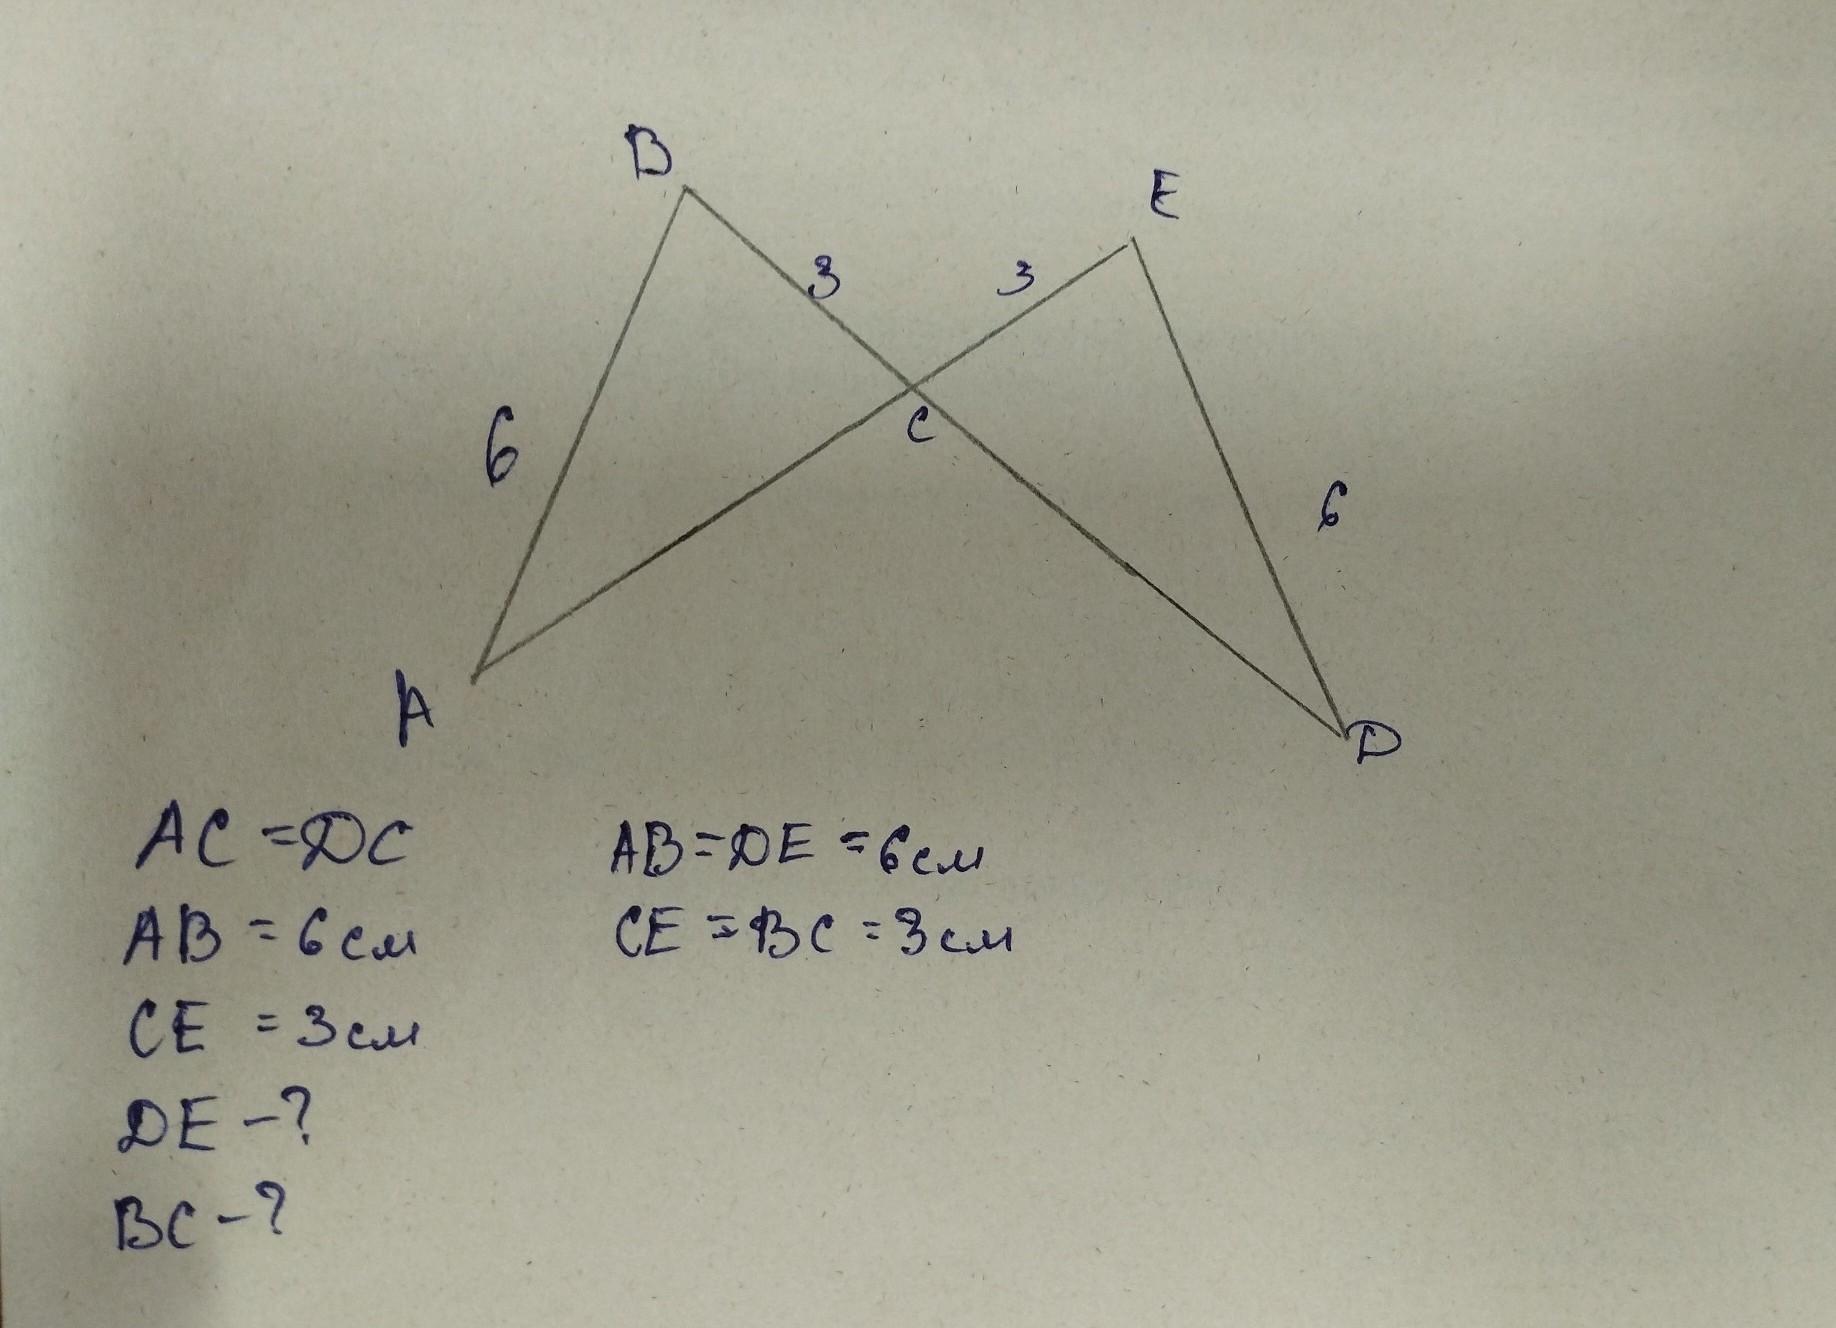 B
E
3
3
6
C
6
A
D
AC = DC
AB = DE = 6 см
AB = 6 см
CE = BC = 3 см
CE = 3 см
DE - ?
BC - ?